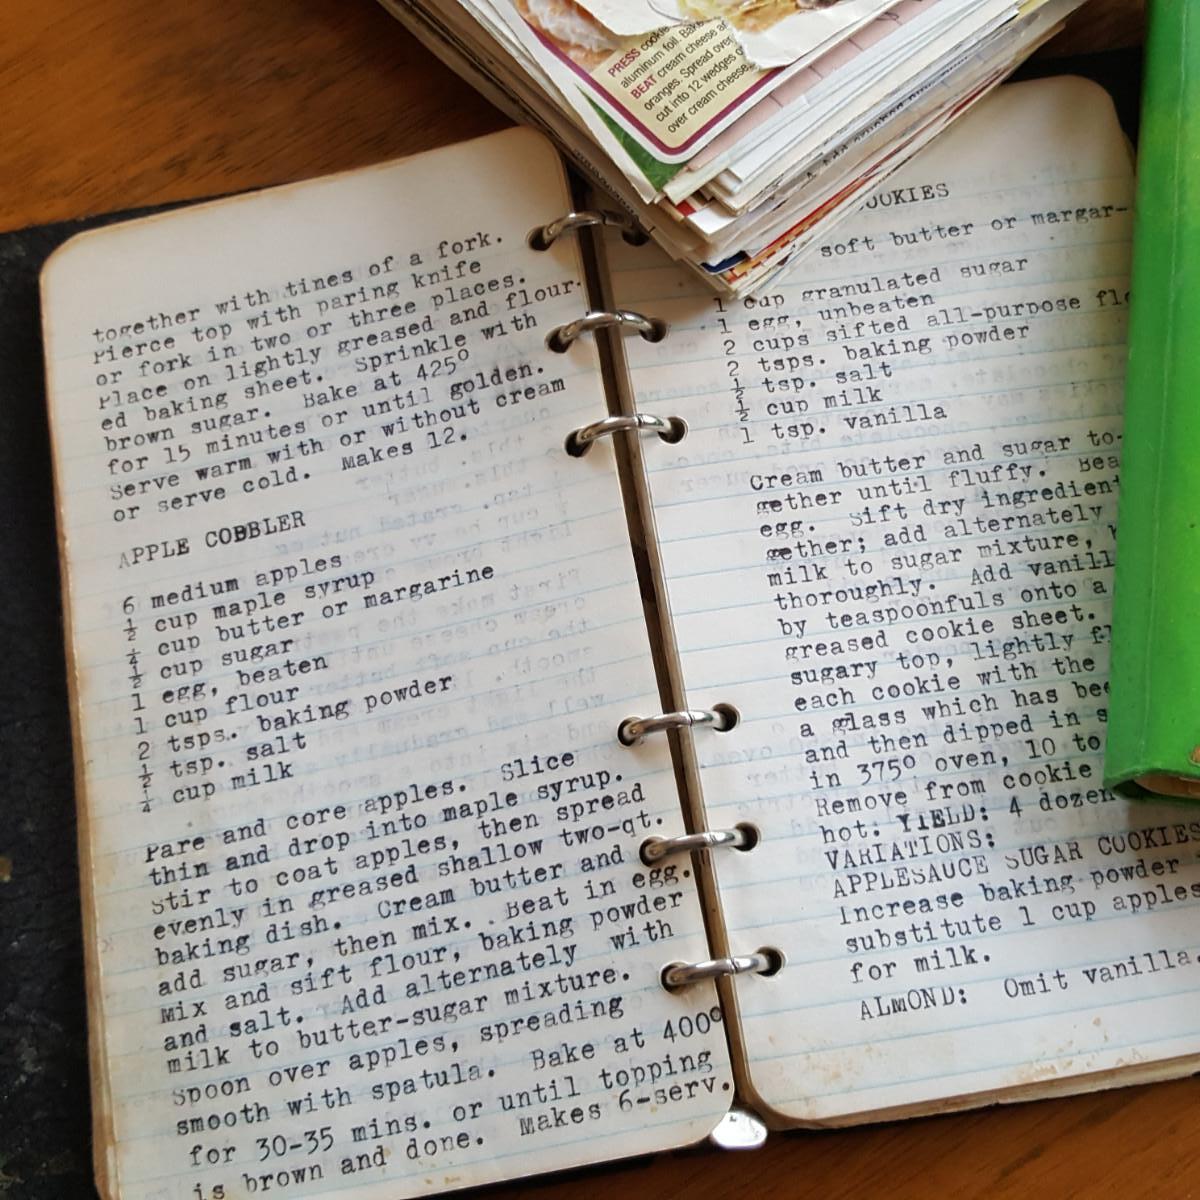 PRESS cookie
aluminum foil. Bake
BEAT cream cheese
oranges. Spread over
cut into 12 wedges
over cream cheese
together with tines of a fork.
Pierce top with paring knife
or fork in two or three places.
Place on lightly greased and flour-
ed baking sheet. Sprinkle with
brown sugar. Bake at 425°
for 15 minutes or until golden.
Serve warm with or without cream
or serve cold. Makes 12.
APPLE COBBLER
6 medium apples
½ cup maple syrup
¼ cup butter or margarine
½ cup sugar
1 egg, beaten
1 cup flour
2 tsps. baking powder
½ tsp. salt
¼ cup milk
Pare and core apples. Slice
thin and drop into maple syrup.
Stir to coat apples, then spread
evenly in greased shallow two-qt.
baking dish. Cream butter and
add sugar, then mix. Beat in egg.
Mix and sift flour, baking powder
and salt. Add alternately with
milk to butter-sugar mixture.
Spoon over apples, spreading
smooth with spatula. Bake at 400°
for 30-35 mins. or until topping
is brown and done. Makes 6-serv.
COOKIES
soft butter or margar-
1 cup granulated sugar
1 egg, unbeaten
2 cups sifted all-purpose
2 tsps. baking powder
½ tsp. salt
½ cup milk
1 tsp. vanilla
Cream butter and sugar to-
gether until fluffy. Bea
egg. Sift dry ingredient
gether; add alternately
milk to sugar mixture,
thoroughly. Add vanill
by teaspoonfuls onto a
greased cookie sheet.
sugary top, lightly
each cookie with the
a glass which has bee
and then dipped in
in 375° oven, 10 to
Remove from cookie
hot. YIELD: 4 dozen
VARIATIONS:
APPLESAUCE SUGAR COOKIES
Increase baking powder
substitute 1 cup apples
for milk.
ALMOND: Omit vanilla.